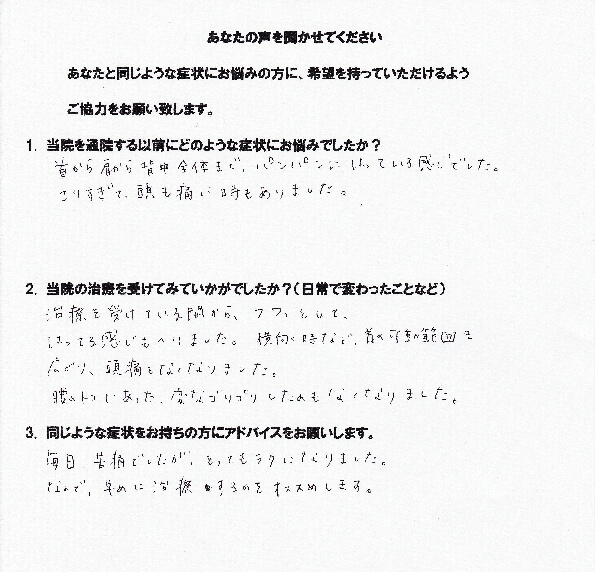 あなたの声を聞かせてください
あなたと同じような症状にお悩みの方に、希望を持っていただけるよう
ご協力をお願い致します。
1. 当院を通院する以前にどのような症状にお悩みでしたか？
首から肩から背中全体まで、パンパンにはっている感じでした。
こりすぎて、頭も痛い時もありました。
2. 当院の治療を受けてみていかがでしたか？（日常で変わったことなど）
治療を受けている間から、フワっとして、
はってる感じもへりました。 横向く時など、首の可動範囲も
広がり、頭痛もなくなりました。
腰の にあった、変なゴリゴリしたのもなくなりました。
3. 同じような症状をお持ちの方にアドバイスをお願いします。
毎日、苦痛でしたが、とってもラクになりました。
なので、早めに治療するのをオススメします。